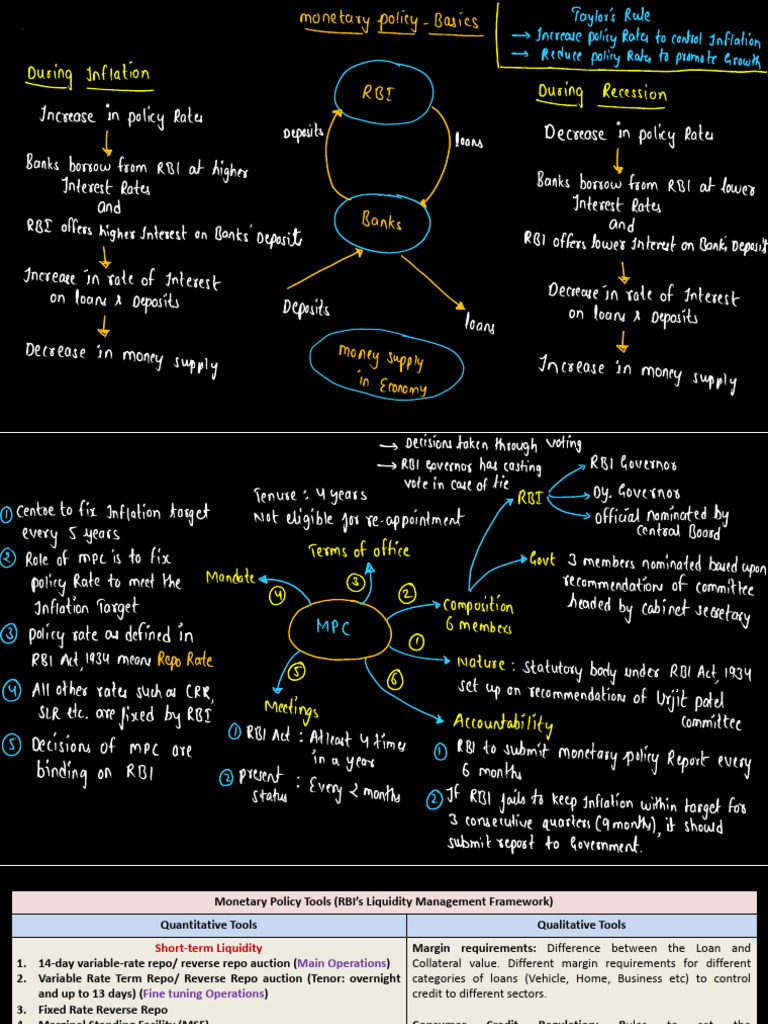 monetary policy - Basics
Taylor's Rule
→ Increase policy Rates to control Inflation
→ Reduce policy Rates to promote Growth
During Inflation
Increase in policy Rates
Banks borrow from RBI at higher
Interest Rates
and
RBI offers higher Interest on Banks' Deposits
Increase in rate of Interest
on loans & Deposits
Decrease in money supply
RBI
Deposits
loans
Banks
Deposits
loans
money supply
in Economy
During Recession
Decrease in policy Rates
Banks borrow from RBI at lower
Interest Rates
and
RBI offers lower Interest on Banks Deposits
Decrease in rate of Interest
on loans & Deposits
Increase in money supply
① Centre to fix Inflation target
every 5 years
② Role of MPC is to fix
policy Rate to meet the
Inflation Target
③ policy rate as defined in
RBI Act, 1934 means Repo Rate
④ All other rates such as CRR,
SLR etc. are fixed by RBI
⑤ Decisions of MPC are
binding on RBI
Mandate
④
Tenure : 4 years
Not eligible for re-appointment
Terms of office
③
MPC
→ Decisions taken through voting
→ RBI Governor has casting
vote in case of tie
②
Composition
6 members
RBI
RBI Governor
Dy. Governor
Official nominated by
Central Board
Govt 3 members nominated based upon
recommendation of committee
headed by cabinet secretary
①
Nature : statutory body under RBI Act, 1934
set up on recommendation of Urjit patel
committee
⑤
Meetings
① RBI Act : Atleast 4 times
in a year
② present status : Every 2 months
⑥
Accountability
① RBI to submit monetary policy Report every
6 months
② If RBI fails to keep Inflation within target for
3 consecutive quarters (9 month), it should
submit report to Government.
Monetary Policy Tools (RBI's Liquidity Management Framework)
Quantitative Tools
Qualitative Tools
Short-term Liquidity
1. 14-day variable-rate repo/ reverse repo auction (Main Operations)
2. Variable Rate Term Repo/ Reverse Repo auction (Tenor: overnight
and up to 13 days) (Fine tuning Operations)
3. Fixed Rate Reverse Repo
4. Marginal Standing Facility (MSF)
Margin requirements: Difference between the Loan and
Collateral value. Different margin requirements for different
categories of loans (Vehicle, Home, Business etc) to control
credit to different sectors.
Consumer Credit Regulation: Rules to set the